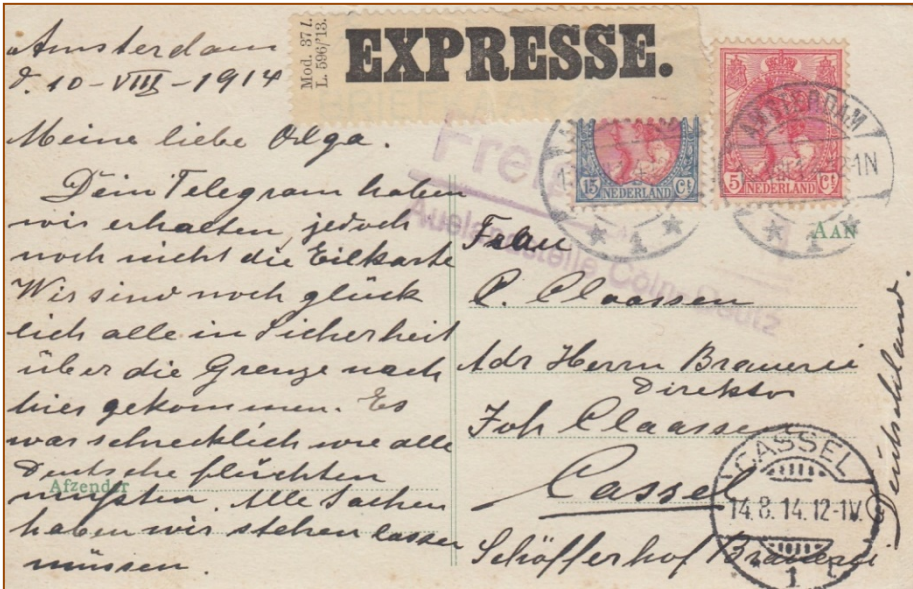 Amsterdam
d. 10-VIII-1914
Meine liebe Olga.
Dein Telegram haben
wir erhalten, jedoch
noch nicht die Eilkarte
Wir sind noch glück
lich alle in Sicherheit
über die Grenze nach
hier gekommen. Es
war schrecklich wie alle
Deutsche flüchten
Afzender
mußten. Alle Sachen
haben wir stehen lassen
müssen.
Mod. 37 l.
L. 596/'13.
EXPRESSE.
15 NEDERLAND Ct
5 NEDERLAND Ct
AMSTERDAM
1
1
Auslandsstelle Cöln-Deutz
AAN
Frau
C. Claassen
Adr Herrn Brauerei
Direktor
Joh Claassen
Cassel
Schöfferhof Brauerei
Deutschland.
CASSEL
14.8.14.12-1N.
1 t